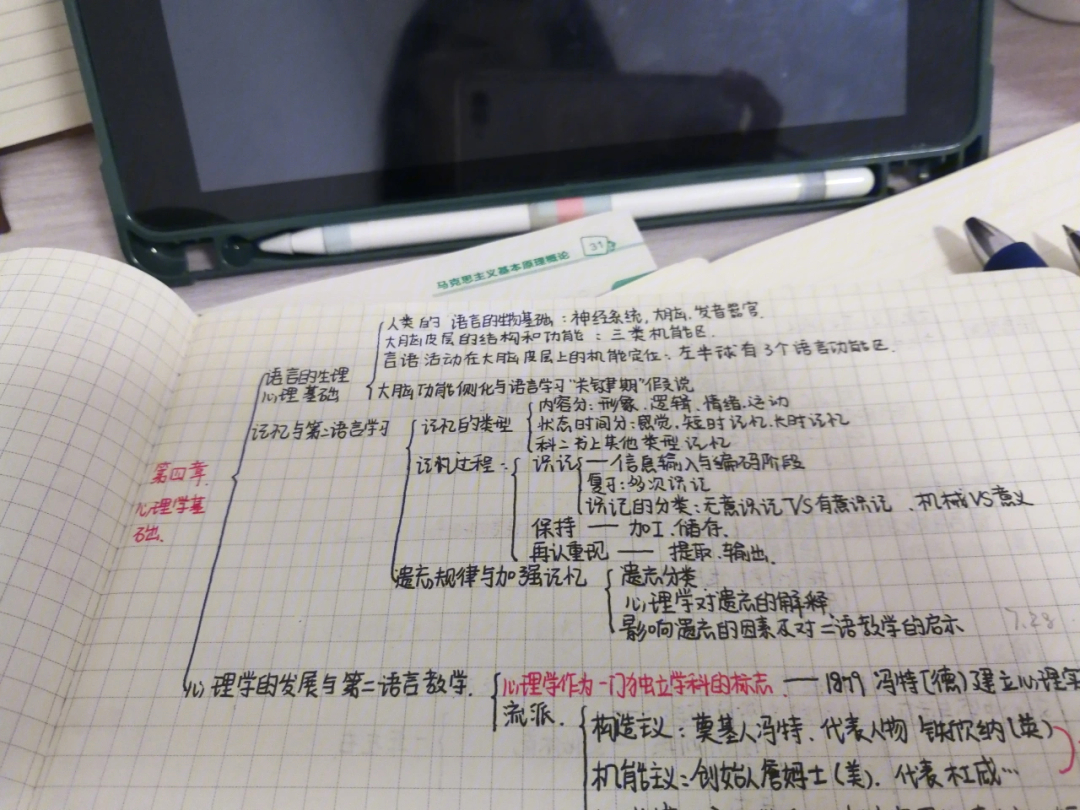 31
马克思主义基本原理概论
人类的 语言的生物基础：神经系统，大脑，发音器官.
大脑皮层的结构和功能：三类机能区.
言语活动在大脑皮层上的机能定位：左半球有3个语言功能区.
语言的生理
心理基础
大脑功能侧化与语言学习“关键期”假说
内容分：形象、逻辑、情绪、运动
记忆与第二语言学习
记忆的类型
状态时间分：感觉、短时记忆、长时记忆
科二书上其他类型记忆
记忆过程：
识记 — 信息输入与编码阶段
第四章.
复习：多次识记
心理学基
础.
识记的分类：无意识记 VS 有意识记 、机械VS意义
保持 — 加工.储存.
再认重现 — 提取.输出.
遗忘规律与加强记忆
遗忘分类
心理学对遗忘的解释
影响遗忘的因素及对二语教学的启示
7.28
心理学的发展与第二语言教学.
心理学作为一门独立学科的标志 — 1879 冯特(德)建立心理实
流派.
构造主义：奠基人冯特、代表人物 铁钦纳(英)
机能主义：创始人詹姆士(美)、代表杜威…